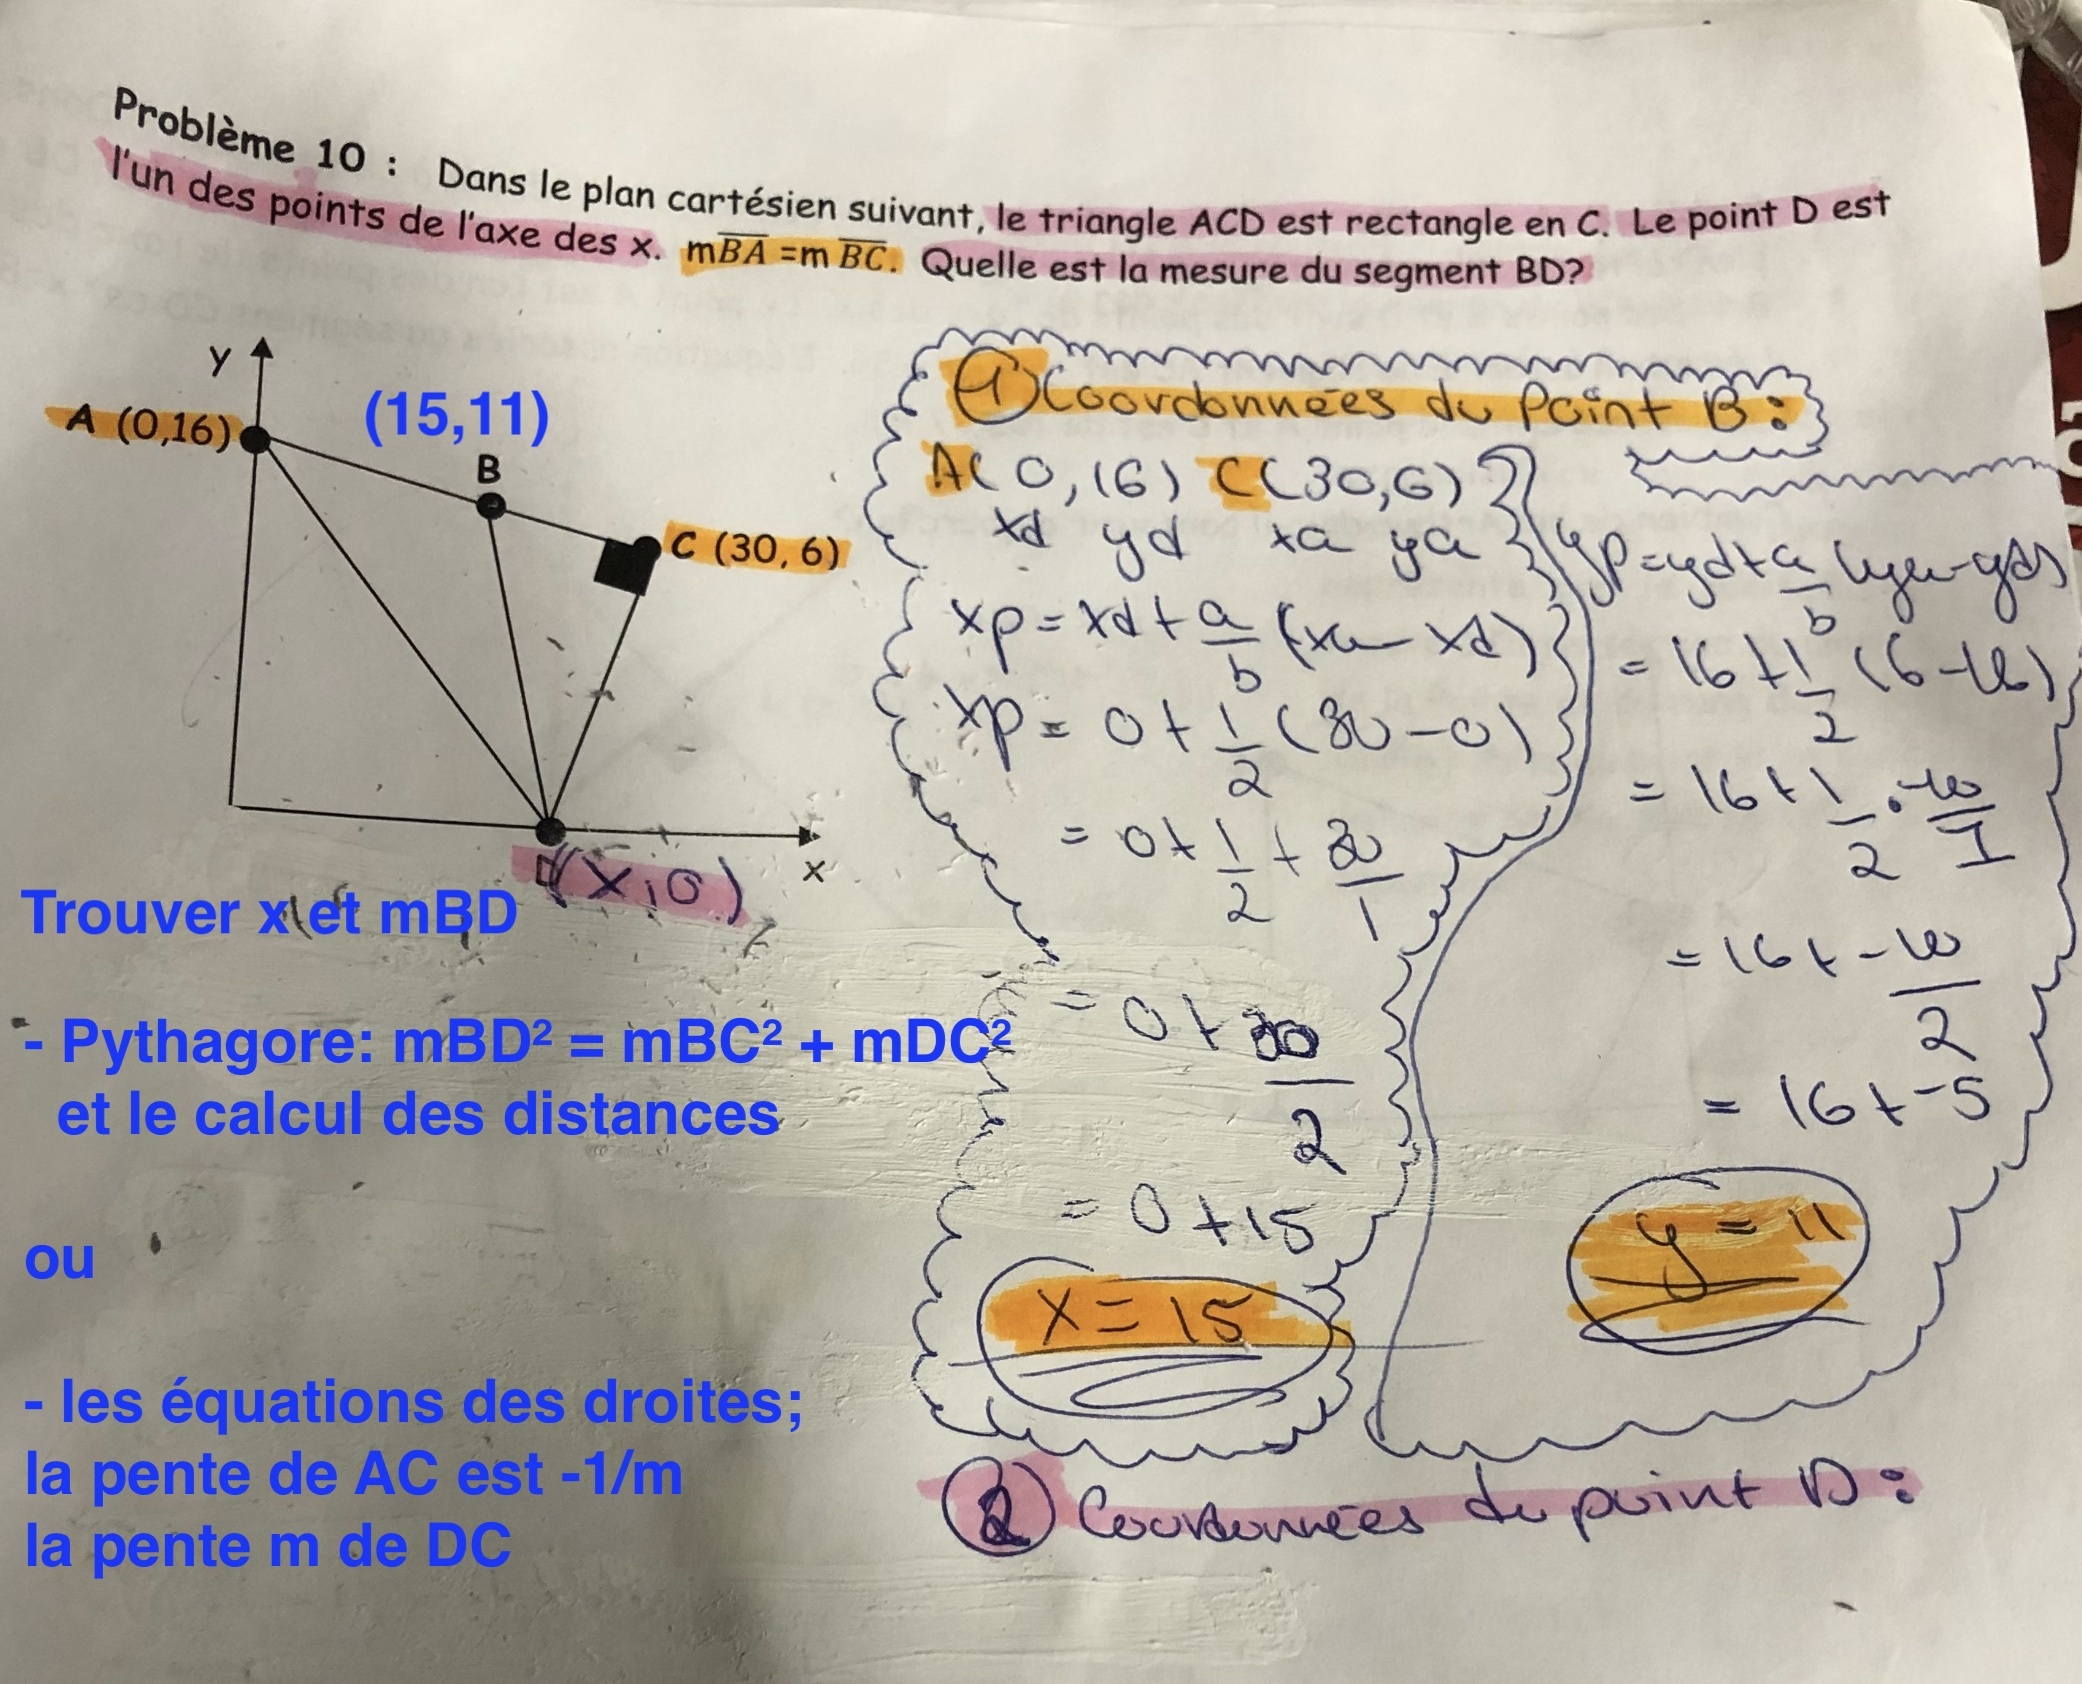 Problème 10 : Dans le plan cartésien suivant, le triangle ACD est rectangle en C. Le point D est
l'un des points de l'axe des x. mBA =m BC. Quelle est la mesure du segment BD?
y
A (0,16)
(15,11)
B
C (30, 6)
D(x,0)
x
Trouver x et mBD
- Pythagore: mBD² = mBC² + mDC²
et le calcul des distances
ou
- les équations des droites;
la pente de AC est -1/m
la pente m de DC
① Coordonnées du Point B:
A(0,16) C(30,6)
xd yd xa ya
xp = xd + a/b (xa - xd)
xp = 0 + 1/2 (30-0)
= 0 + 1/2 + 30/1
= 0 + 30/2
= 0 + 15
x = 15
yp = yd + a/b (ya-yd)
= 16 + 1/2 (6-16)
= 16 + 1/2 · -10/1
= 16 + -10/2
= 16 + -5
y = 11
② Coordonnées du point D: